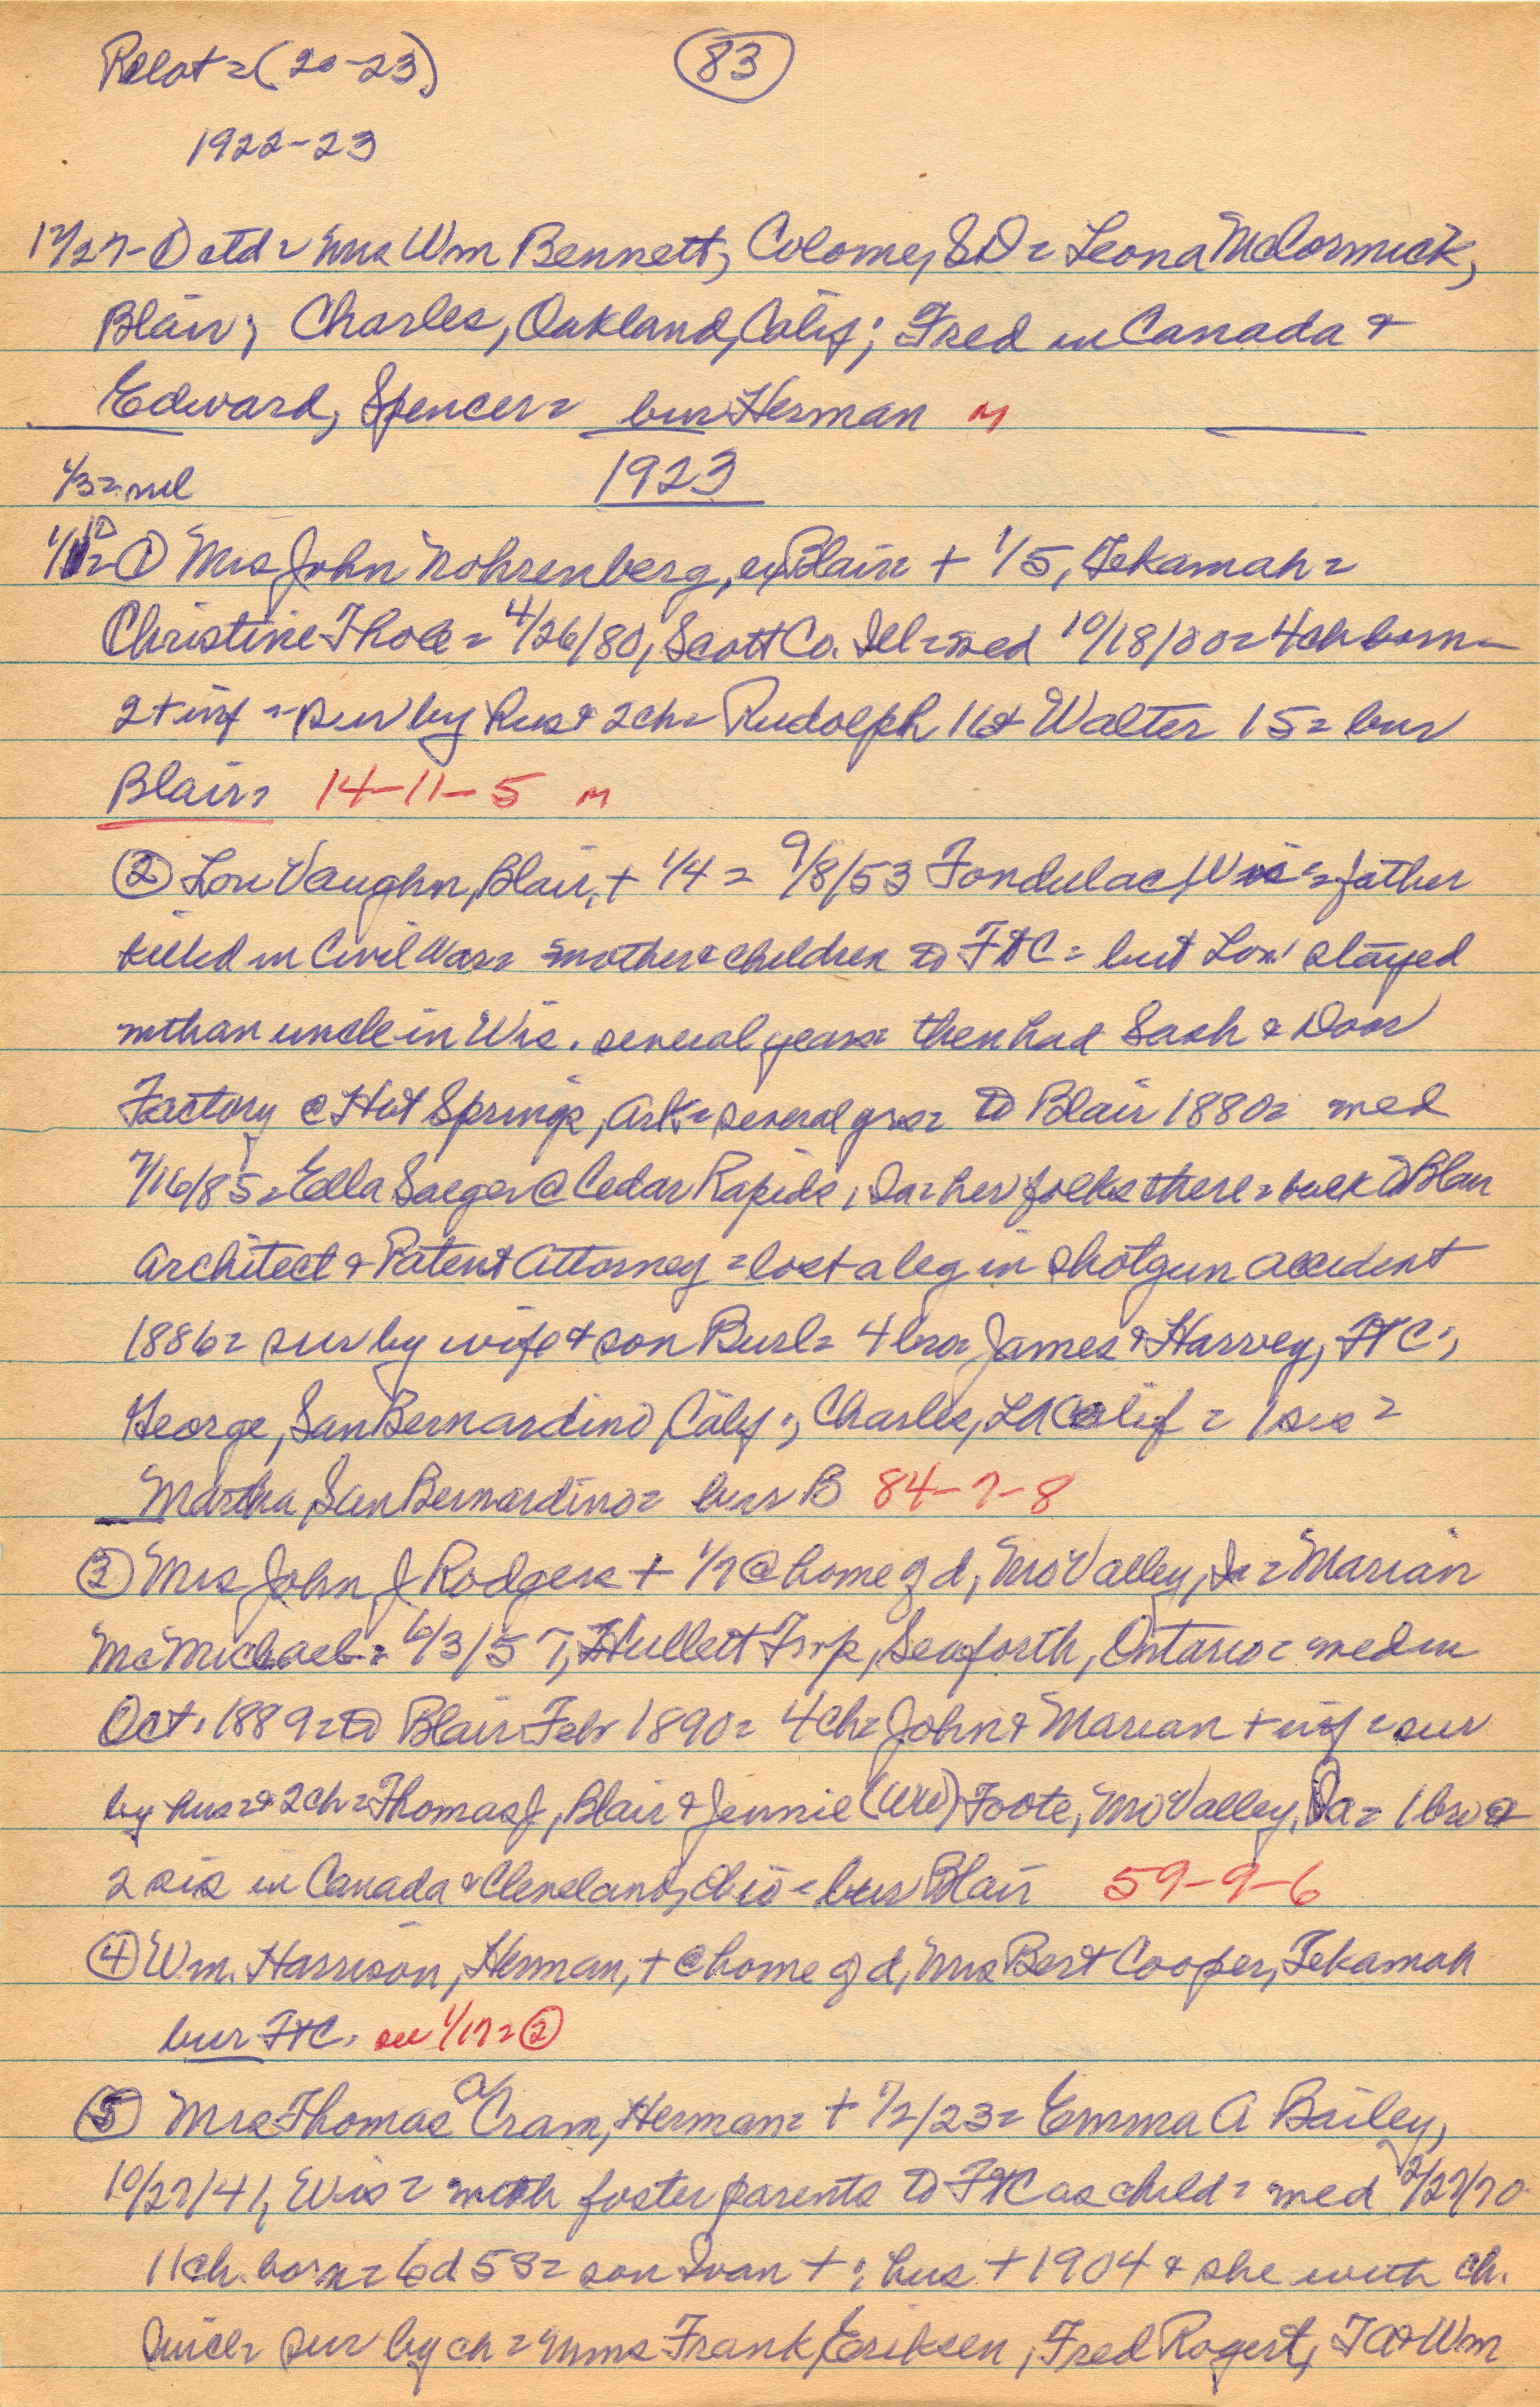 Pilot = (20-23)
83
1922-23
12/27 - ① ctd = Mrs Wm Bennett, Colome, SD = Leona McCormick,
Blair; Charles, Oakland, Calif; Fred in Canada &
Edward, Spencer = bur Herman M
1/3 = nil
1923
1/10 = ① Mrs John Nohrenberg, ex Blair = + 1/5, Tekamah =
Christine Thole = 4/26/80, Scott Co. Ill = med 10/18/00 = 4 ch born -
2 + inf = sur by hus & 2 ch = Rudolph 16 & Walter 15 = bur
Blair = 14-11-5 M
② Lou Vaughn, Blair, + 1/4 = 9/8/53 Fondulac, Wis = father
killed in Civil War = mother & children to FtC = but Lou stayed
with an uncle in Wis. several years = then had Sash & Door
Factory @ Hot Springs, Ark = several yrs = to Blair 1880 = med
7/16/85 = Ella Saeger @ Cedar Rapids, Ia = her folks there = back to Blair
Architect & Patent Attorney = lost a leg in shotgun accident
1886 = sur by wife & son Burl = 4 bro = James & Harvey, FtC;
George, San Bernardino, Calif; Charles, LA Calif = 1 sis =
Martha, San Bernardino = bur B 84-7-8
③ Mrs John J Rodgers + 1/7 @ home of d, Mo Valley, Ia = Marian
McMichael = 6/3/57, Hullett Twp, Seaforth, Ontario = med in
Oct. 1889 = to Blair Feb 1890 = 4 ch = John & Marian + inf = sur
by hus = & 2 ch = Thomas J, Blair & Jennie (WW) Foote, Mo Valley, Ia = 1 bro &
2 sis in Canada & Cleveland, Ohio = bur Blair 59-9-6
④ Wm. Harrison, Herman, + @ home of d, Mrs Bert Cooper, Tekamah
bur FtC. see 1/17 = ②
⑤ Mrs Thomas A/ Cram, Herman = + 1/2/23 = Emma A Bailey,
10/27/41, Wis = with foster parents to FtC as child = med 12/27/70
11 ch. born = 6 d 5 S = son Ivan +; hus + 1904 & she with ch.
since = sur by ch = Mmes Frank Eriksen, Fred Rogert, TA & Wm